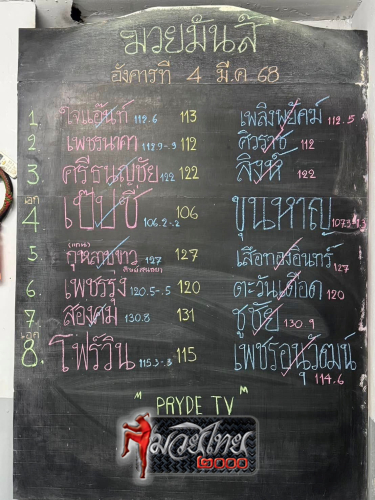 มวยมันส์
อังคารที่ 4 มี.ค 68
1. ใจแอ๊นท์ 112.6 113 เพลิงพยัคฆ์ 112.5
2. เพชรนาคา 112 ศิวราช 112
3. ศรีธนญชัย 122 122 สิงห์ 122
เอก
4 เป๊ปซี่ 106.2-.2 106 ขุนหาญ
5. กุหลาบขาว 127 127 เสือทองอินทร์ 127
6. เพชรรุ่ง 120.5-.5 120 ตะวันเดือด 120
7. สองคม 130.8 131 ชูชัย 130.9
เอก
8. โฟร์วิน 115.3-.3 115 เพชรอนุวัฒน์ 114.6
" PRYDE TV "
มวยไทย
๒๐๐๐